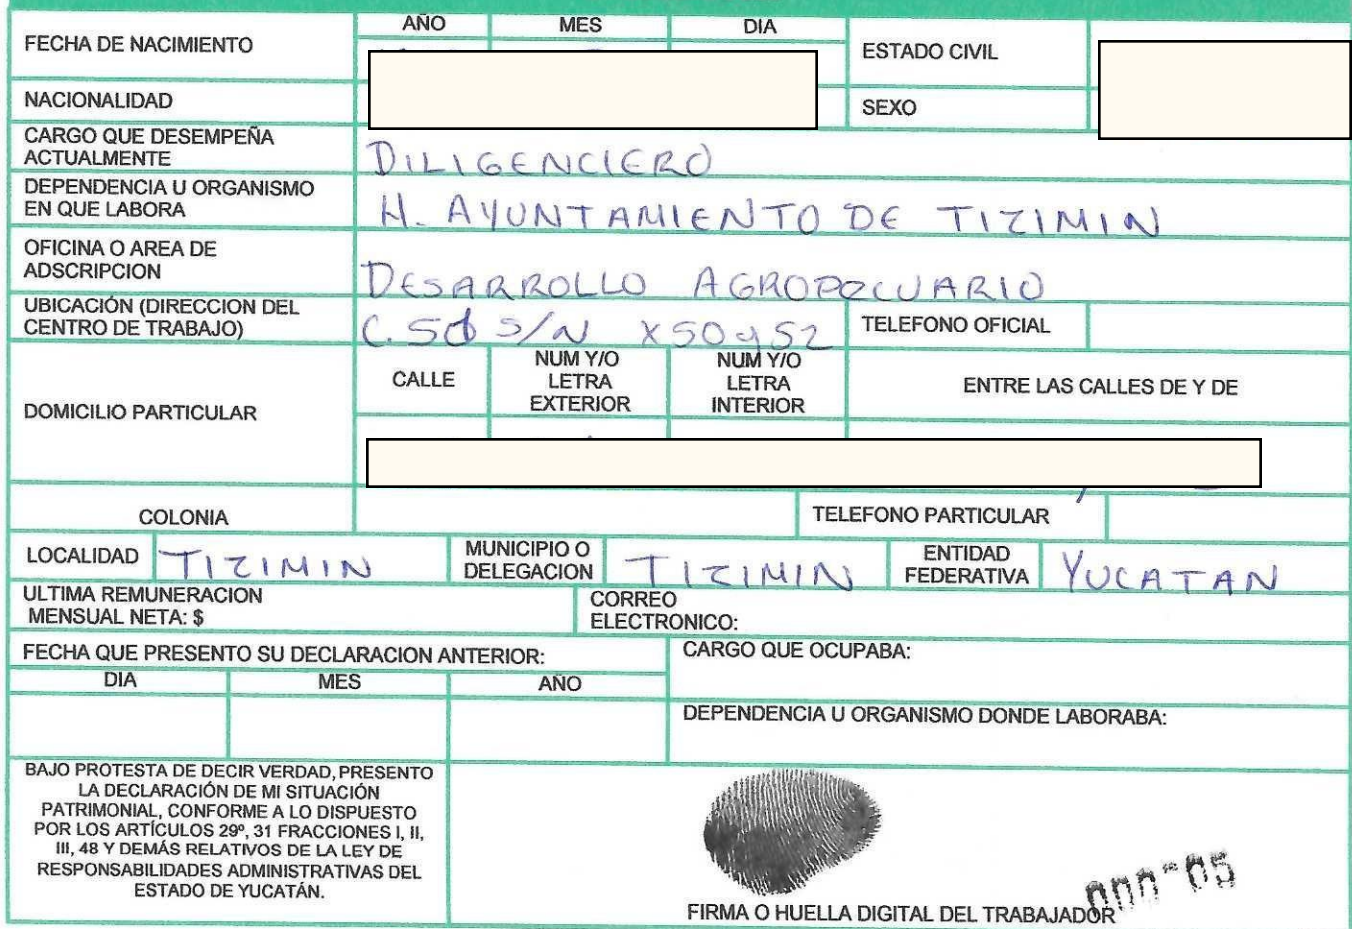 FECHA DE NACIMIENTO AÑO MES DIA ESTADO CIVIL
NACIONALIDAD SEXO
CARGO QUE DESEMPEÑA
ACTUALMENTE DILIGENCIERO
DEPENDENCIA U ORGANISMO
EN QUE LABORA H. AYUNTAMIENTO DE TIZIMIN
OFICINA O AREA DE
ADSCRIPCION DESARROLLO AGROPECUARIO
UBICACIÓN (DIRECCION DEL
CENTRO DE TRABAJO) C. S/N X 50 y 52 TELEFONO OFICIAL
DOMICILIO PARTICULAR
CALLE
NUM Y/O
LETRA
EXTERIOR
NUM Y/O
LETRA
INTERIOR
ENTRE LAS CALLES DE Y DE
COLONIA TELEFONO PARTICULAR
LOCALIDAD TIZIMIN
MUNICIPIO O
DELEGACION TIZIMIN
ENTIDAD
FEDERATIVA YUCATAN
ULTIMA REMUNERACION
MENSUAL NETA: $
CORREO
ELECTRONICO:
FECHA QUE PRESENTO SU DECLARACION ANTERIOR:
CARGO QUE OCUPABA:
DIA MES AÑO
DEPENDENCIA U ORGANISMO DONDE LABORABA:
BAJO PROTESTA DE DECIR VERDAD, PRESENTO
LA DECLARACIÓN DE MI SITUACIÓN
PATRIMONIAL, CONFORME A LO DISPUESTO
POR LOS ARTÍCULOS 29º, 31 FRACCIONES I, II,
III, 48 Y DEMÁS RELATIVOS DE LA LEY DE
RESPONSABILIDADES ADMINISTRATIVAS DEL
ESTADO DE YUCATÁN.
FIRMA O HUELLA DIGITAL DEL TRABAJADOR